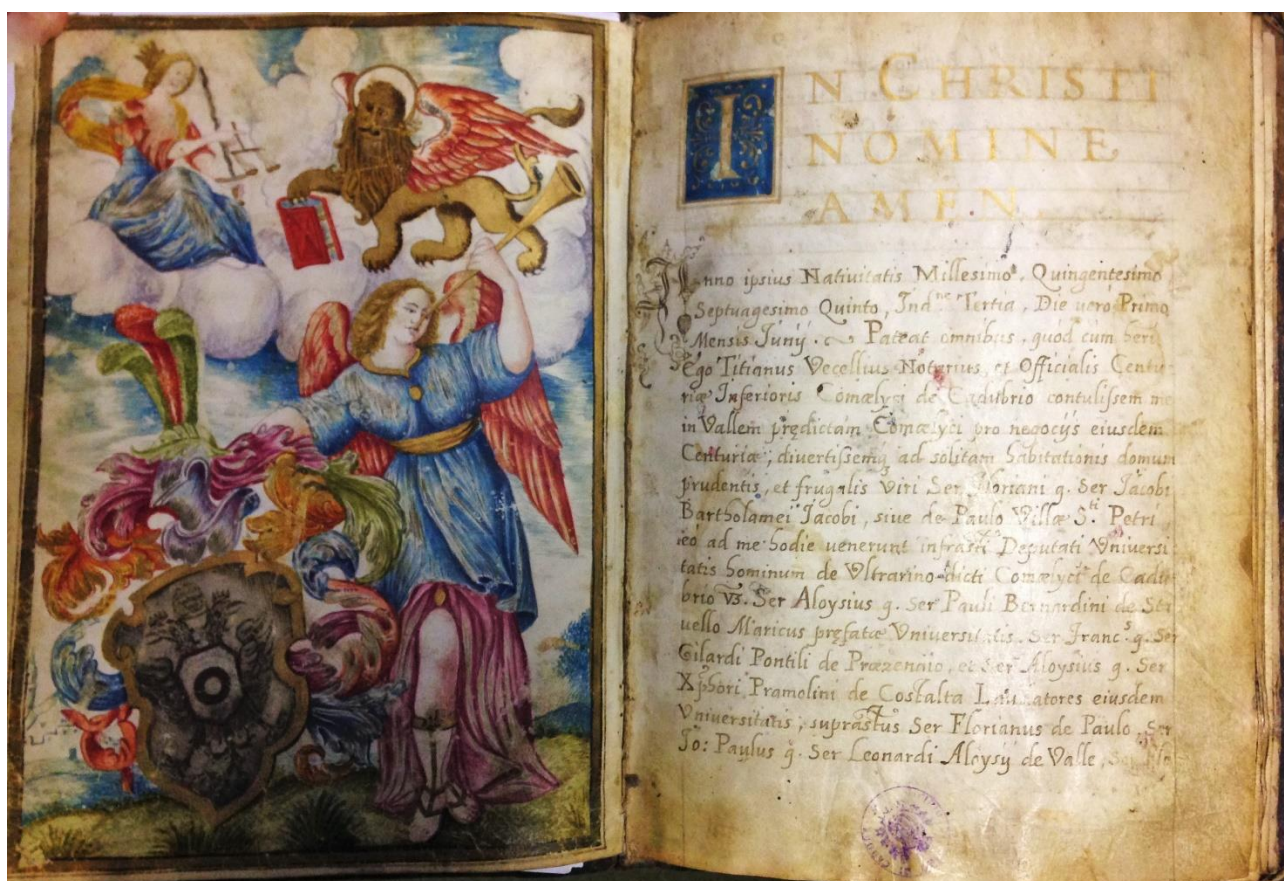 IN CHRISTI
NOMINE
AMEN.
Anno ipsius Nativitatis Millesimo, Quingentesimo
Septuagesimo Quinto, Ind.ne Tertia, Die vero Primo
Mensis Junÿ. Pateat omnibus, quod cum heri
Ego Titianus Vecellius Notarius, et Officialis Centu
riæ Inferioris Comælyci de Cadubrio contulissem me
in Vallem prędictam Comælyci pro negocÿs eiusdem
Centuriæ; divertissemq; ad solitam habitationis domum
prudentis, et frugalis Viri Ser Floriani q. Ser Jacobi
Bartholamei Jacobi, sive de Paulo Villæ S.ti Petri
eò ad me hodie uenerunt infrasti Deputati Vniversi
tatis hominum de Vltrarino dicti Comælyci de Cadu
brio vz. Ser Aloysius q. Ser Pauli Bernardini de Sta
uello Maricus pręfatæ Vniversitatis. Ser Franc.s q. Ser
Gilardi Pontili de Præzenaio, et Ser Aloysius q. Ser
Xphori Pramolini de Costalta Laudatores eiusdem
Vniversitatis, suprastus Ser Florianus de Paulo, Ser
Jo: Paulus q. Ser Leonardi Aloysÿ de Valle,